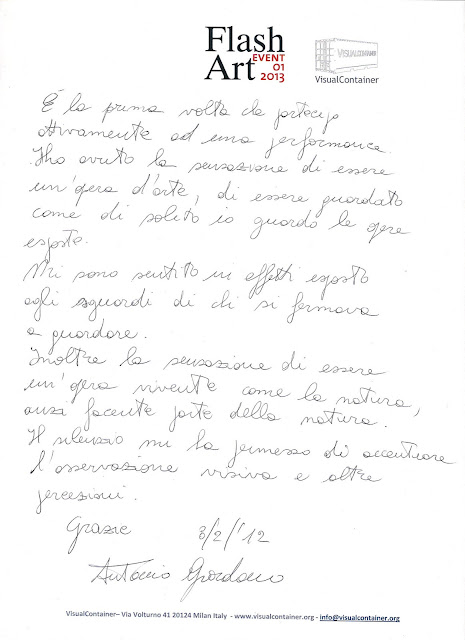 Flash
Art
EVENT
01
2013
VISUALCONTAINER
VisualContainer
È la prima volta che partecipo
attivamente ad una performance.
Ho avuto la sensazione di essere
un'opera d'arte, di essere guardato
come di solito io guardo le opere
esposte.
Mi sono sentito in effetti esposto
agli sguardi di chi si fermava
a guardare.
Inoltre la sensazione di essere
un'opera vivente come la natura,
anzi facente parte della natura.
Il silenzio mi ha permesso di accentuare
l'osservazione visiva e altre
percezioni.
Grazie 3/2/'12
Antonio Giordano
VisualContainer– Via Volturno 41 20124 Milan Italy - www.visualcontainer.org - info@visualcontainer.org